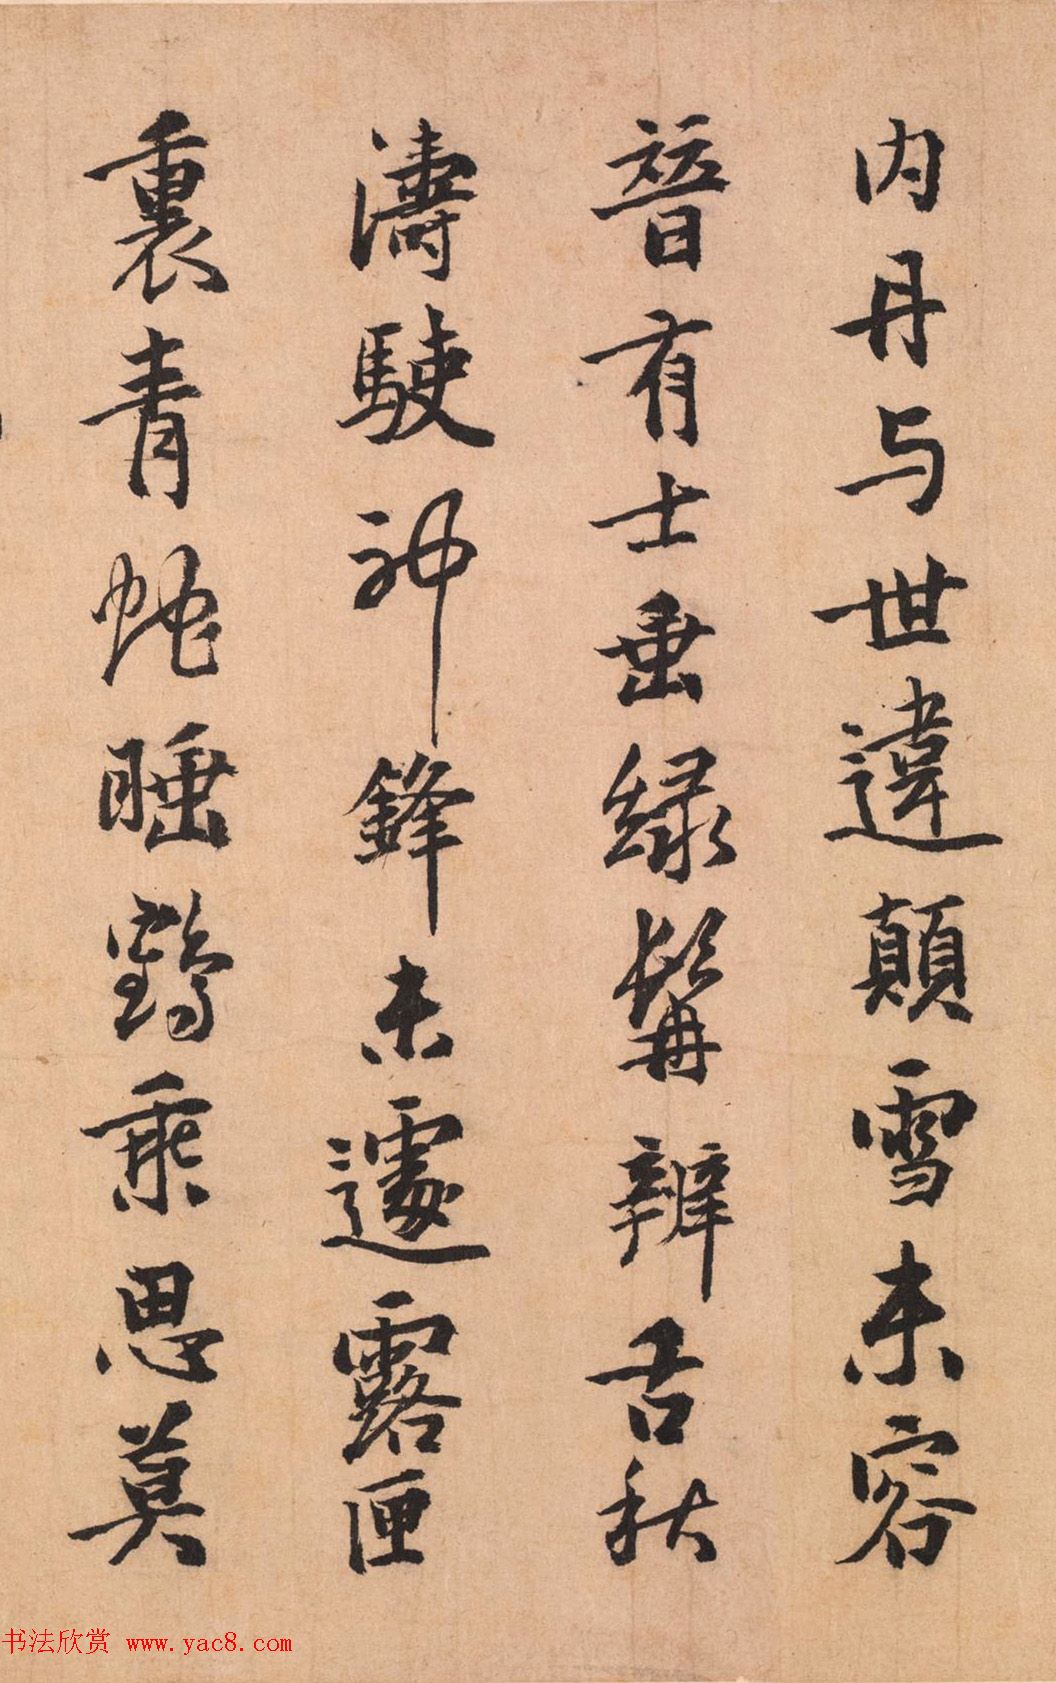 内丹与世違顛雪未容
替有士垂緑髯辨舌秋
濤駛神鋒未遽露匣
裏青蛇睡鶴乘思莫
书法欣赏 www.yac8.com